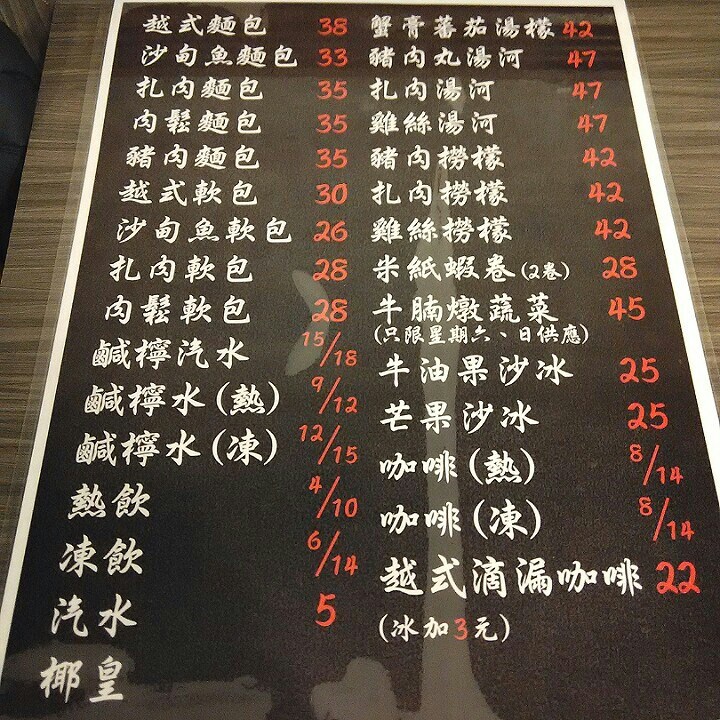 越式麵包 38
沙甸魚麵包 33
扎肉麵包 35
肉鬆麵包 35
豬肉麵包 35
越式軟包 30
沙甸魚軟包 26
扎肉軟包 28
肉鬆軟包 28
鹹檸汽水 15/18
鹹檸水(熱) 9/12
鹹檸水(凍) 12/15
熱飲 4/10
凍飲 6/14
汽水 5
椰皇
蟹膏蕃茄湯檬 42
豬肉丸湯河 47
扎肉湯河 47
雞絲湯河 47
豬肉撈檬 42
扎肉撈檬 42
雞絲撈檬 42
米紙蝦卷(2卷) 28
牛腩燉蔬菜 45
(只限星期六、日供應)
牛油果沙冰 25
芒果沙冰 25
咖啡(熱) 8/14
咖啡(凍) 8/14
越式滴漏咖啡 22
(冰加3元)